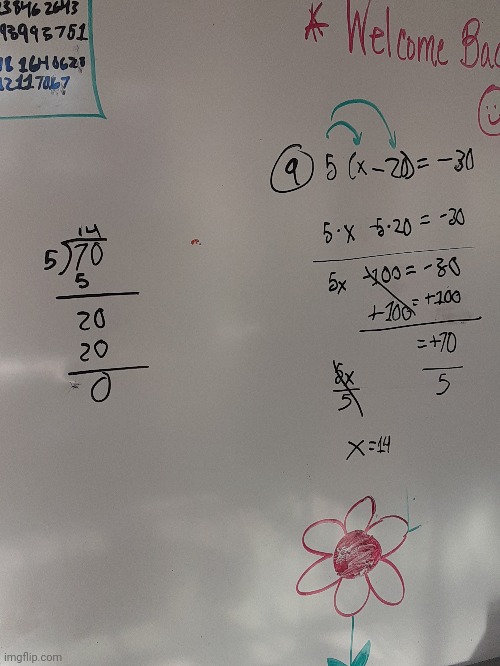 23846 2643
93993751
1640628
62117067
* Welcome Bac
9 5 (x - 20) = -30
5·x -5·20 = -30
5x -100 = -30
+100 = +100
= +70
5x
5
5
x = 14
14
5)70
5
20
20
0
imgflip.com